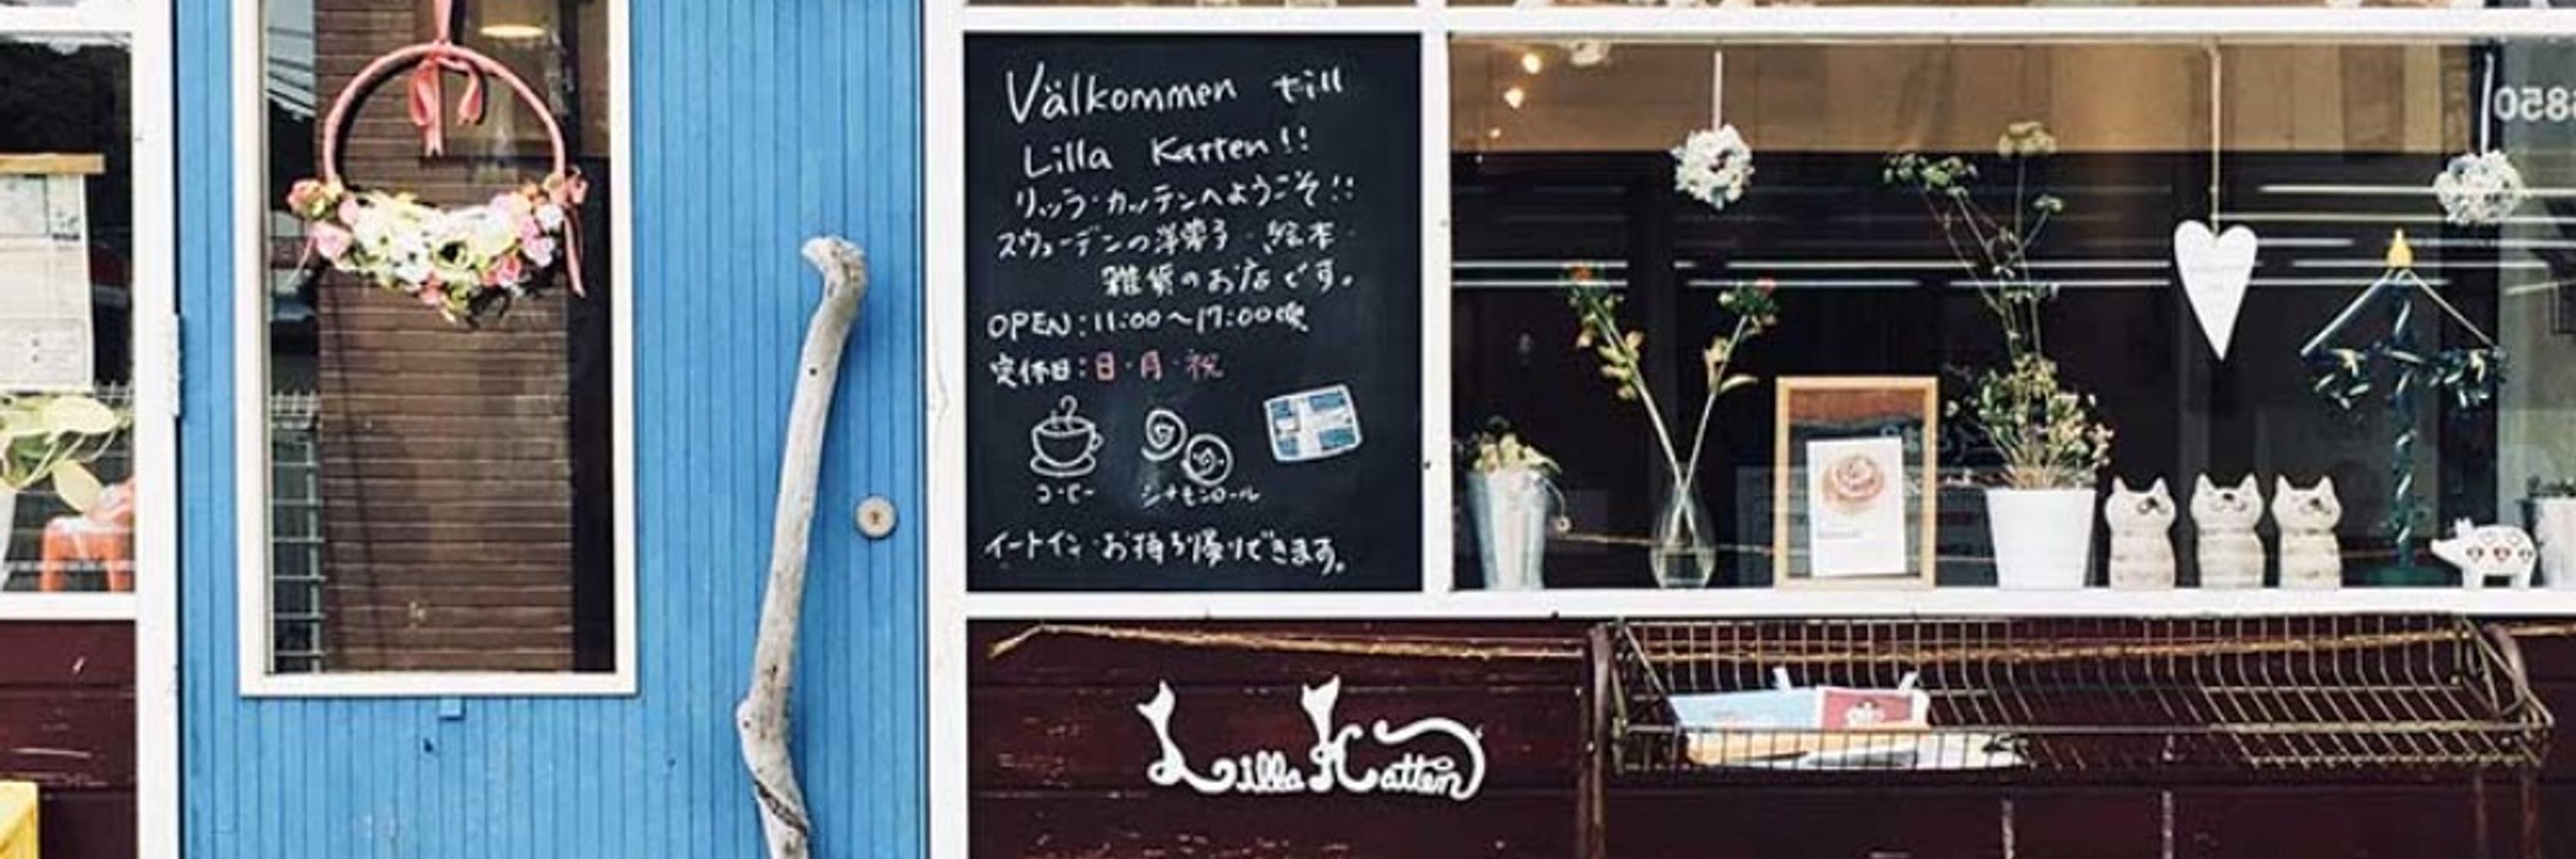 Välkommen till
Lilla Katten!!
リッラ・カッテンへようこそ!!
スウェーデンの洋菓子・絵本・
雑貨のお店です。
OPEN:11:00〜17:00頃
定休日:日・月・祝
コーヒー
シナモンロール
イートイン・お持ち帰りできます。
Lilla Katten